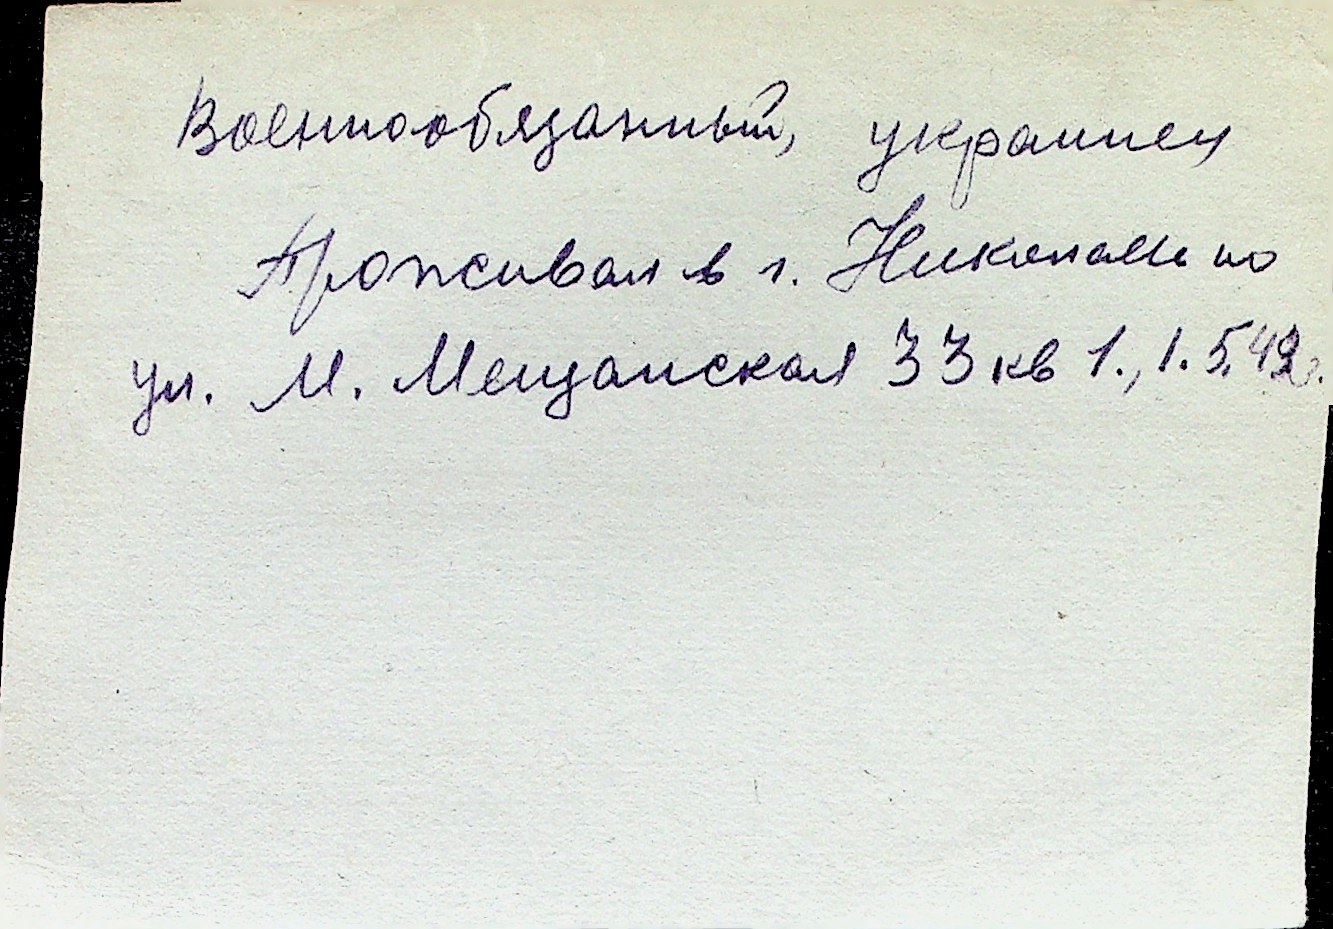 Военнообязанный, украинец
Проживал в г. Николаеве по
ул. М. Мещанская 33 кв 1., 1.5.42г.